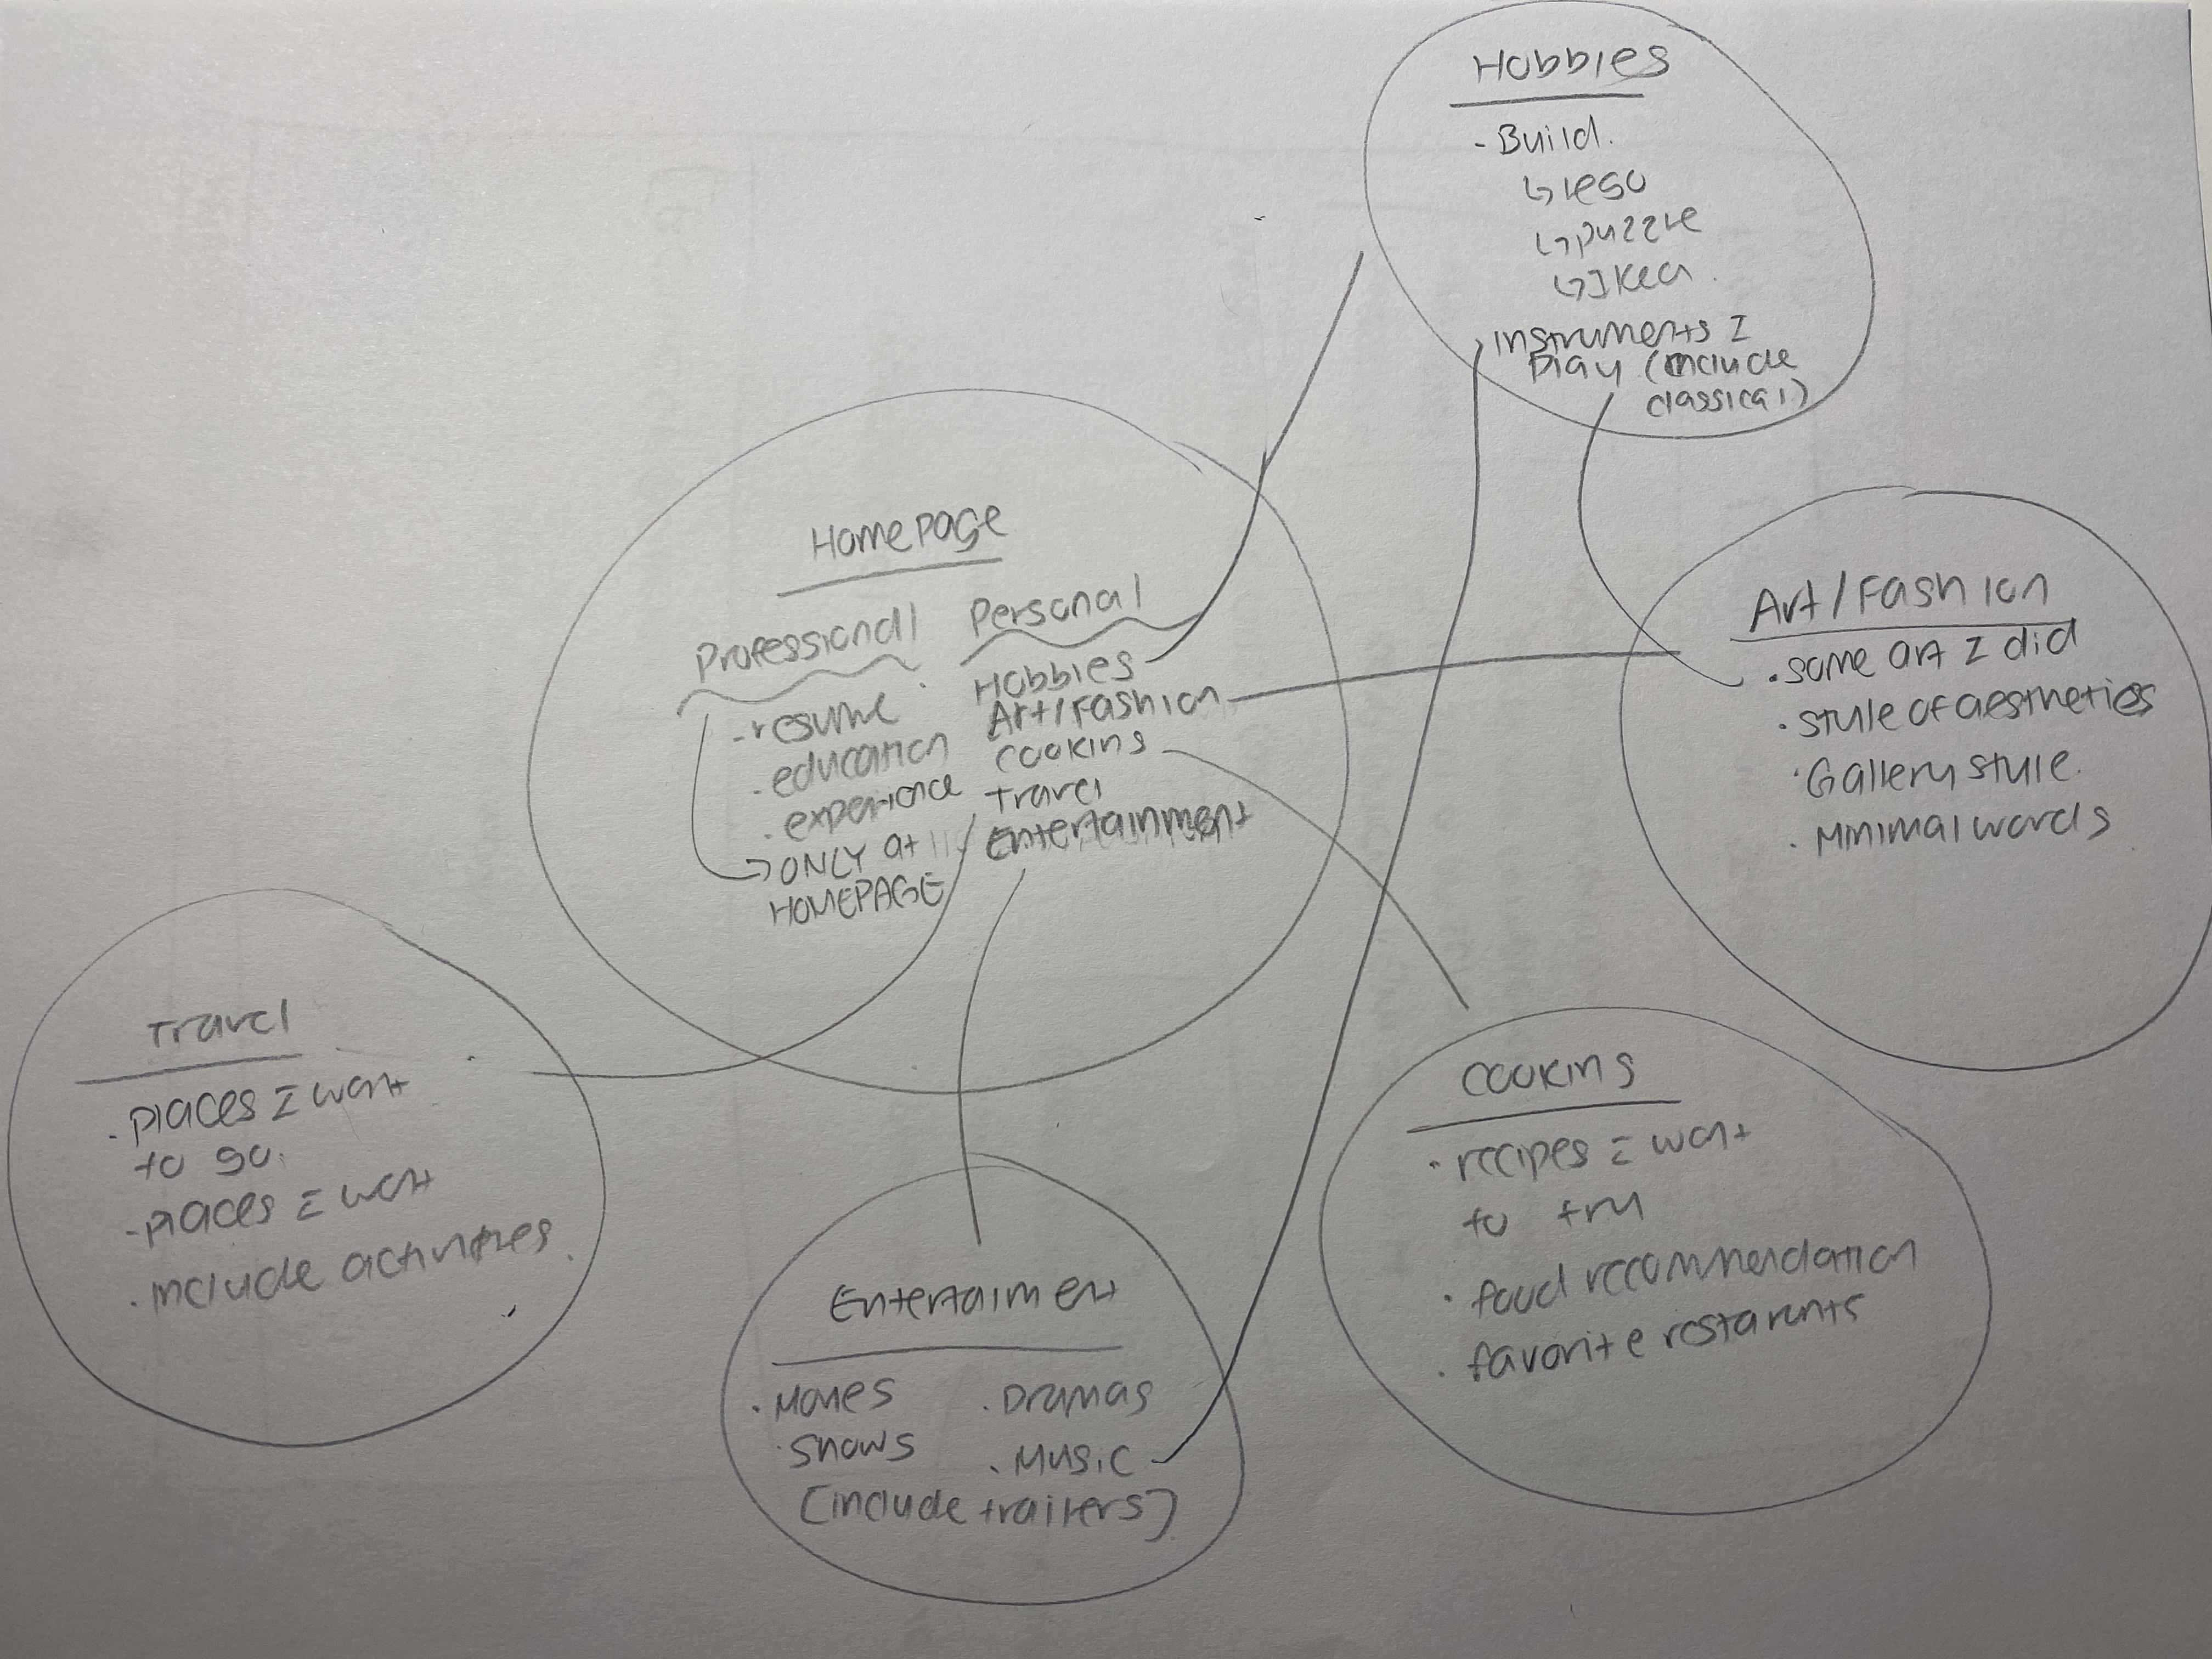 Hobbies
- Build.
↳ lego
↳ puzzle
↳ Ikea.
instruments I
play (include
classical)
Homepage
Professional
- resume
. education
. experience
→ ONLY at
HOMEPAGE
Personal
Hobbies
Art/Fashion
cooking
Travel
Entertainment
Art/Fashion
. some art I did
. style of aesthetics
. Gallery style.
. Minimal words
Travel
. places I want
to go.
- places I want
. include activities.
Entertaiment
. Movies
. shows
. Dramas
. Music
[include trailers]
cooking
. recipes I want
to try
. food recommendation
. favorite restarants